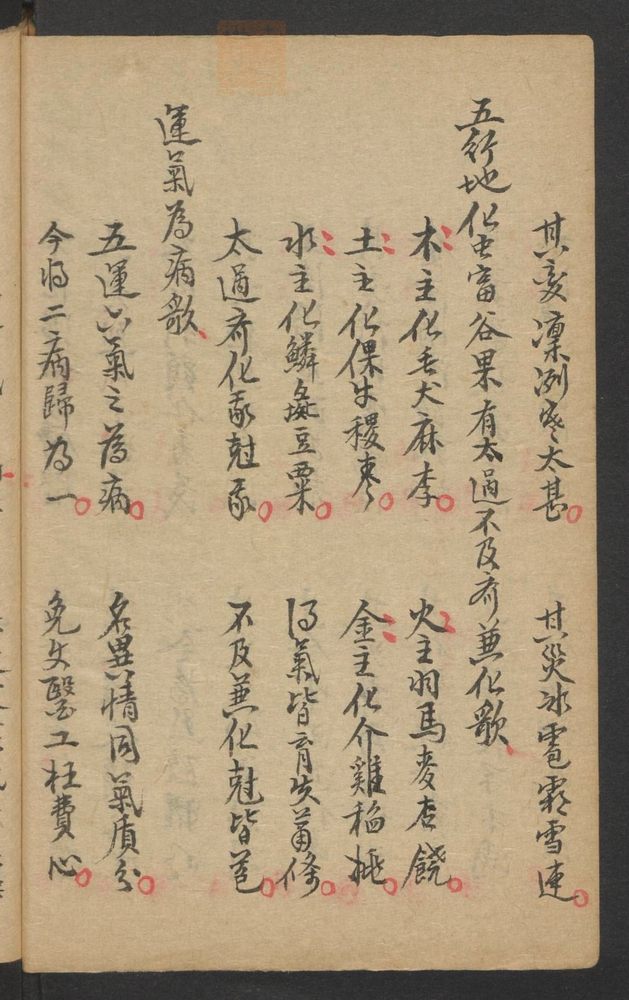 其变凜冽寒太甚 其災冰雹霜雪連
五行地化虫畜谷果有太過不及齐兼化歌
木主化毛犬麻李 火主羽馬麥杏饒
土主化倮牛稷枣 金主化介雞稻桃
水主化鱗彘豆栗 得氣皆育失萧條
太過齐化我尅我 不及兼化尅皆苞
運氣為病歌
五運六氣之為病 名異情同氣质分
今将二病歸為一 免女醫工枉費心